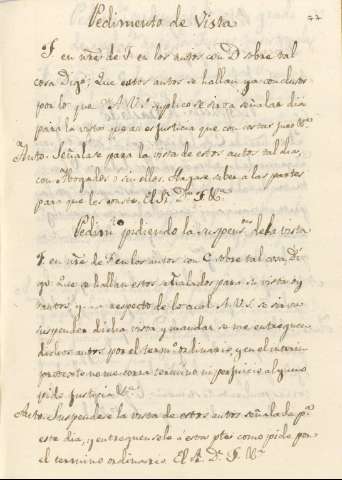 77
Pedimento de Vista
F. en nre. de F. en los autos con D. sobre tal
cosa Digo: Que estos autos se hallan ya conclusos
por lo que á V.S. suplico se sirva señalar dia
para la vista que asi es justicia que con costas juro &a.
Auto. Señalase para la vista de estos autos tal dia,
con Abogados ó sin ellos. Hagase saber á las partes
para que les conste. El Sr. Dn. F. &a.
Pedimto. pidiendo la suspecn. de la vista
F. en nre. de F. en los autos con C. sobre tal cosa, Di-
go: Que se hallan estos señalados para su vista oy
tantos, y..... respecto de lo cual A V.S. se sirva
suspender dicha vista y mandar se me entreguen
dichos autos por el termo. ordinario, y en el interin
protexto no me corra termino ni perjuicio alguno
pido Justicia &a.
Auto. Suspendese la vista de estos autos señalada pa.
este dia, y entreguensele á estas ptes. como pide por
el termino ordinario. El Sr. Dn. F. &a.